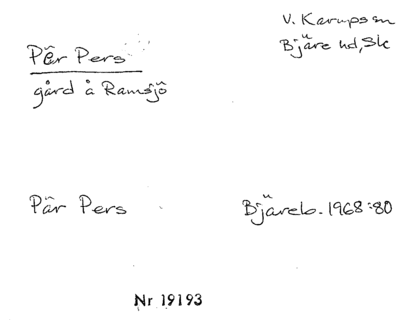 Pär Pers
gård å Ramsjö
V. Karups sn
Bjäre hd, Sk
Pär Pers
Bjäreb. 1968:80
Nr 19193